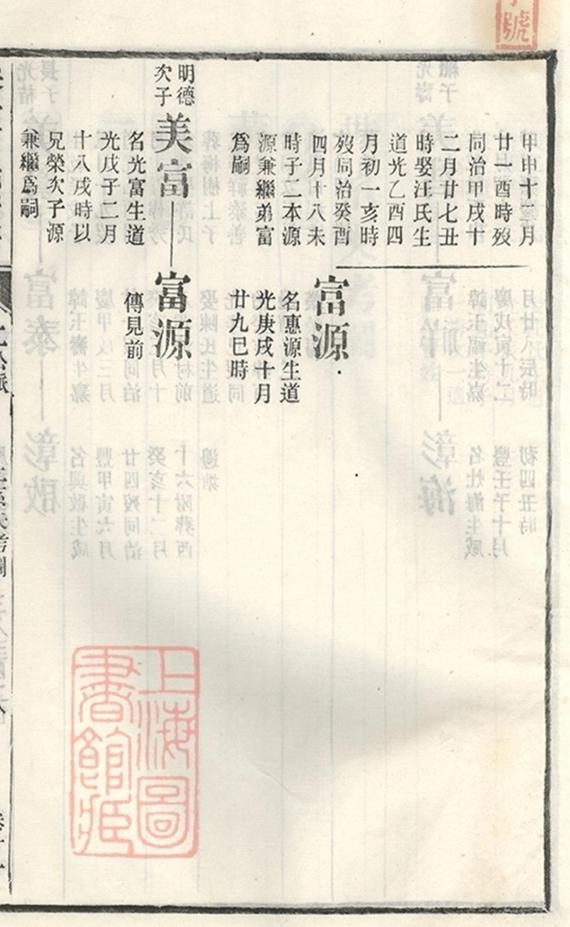 號
甲申十二月
廿一酉時歿
同治甲戌十
二月廿七丑
時娶汪氏生
道光乙酉四
月初一亥時
歿同治癸酉
四月十八未
時子二本源
源兼繼弟富
爲嗣
富源
名惠源生道
光庚戌十月
廿九巳時
明德
次子
美富
名光富生道
光戊子二月
十八戌時以
兄榮次子源
兼繼爲嗣
富源
傳見前
上海圖
書館藏